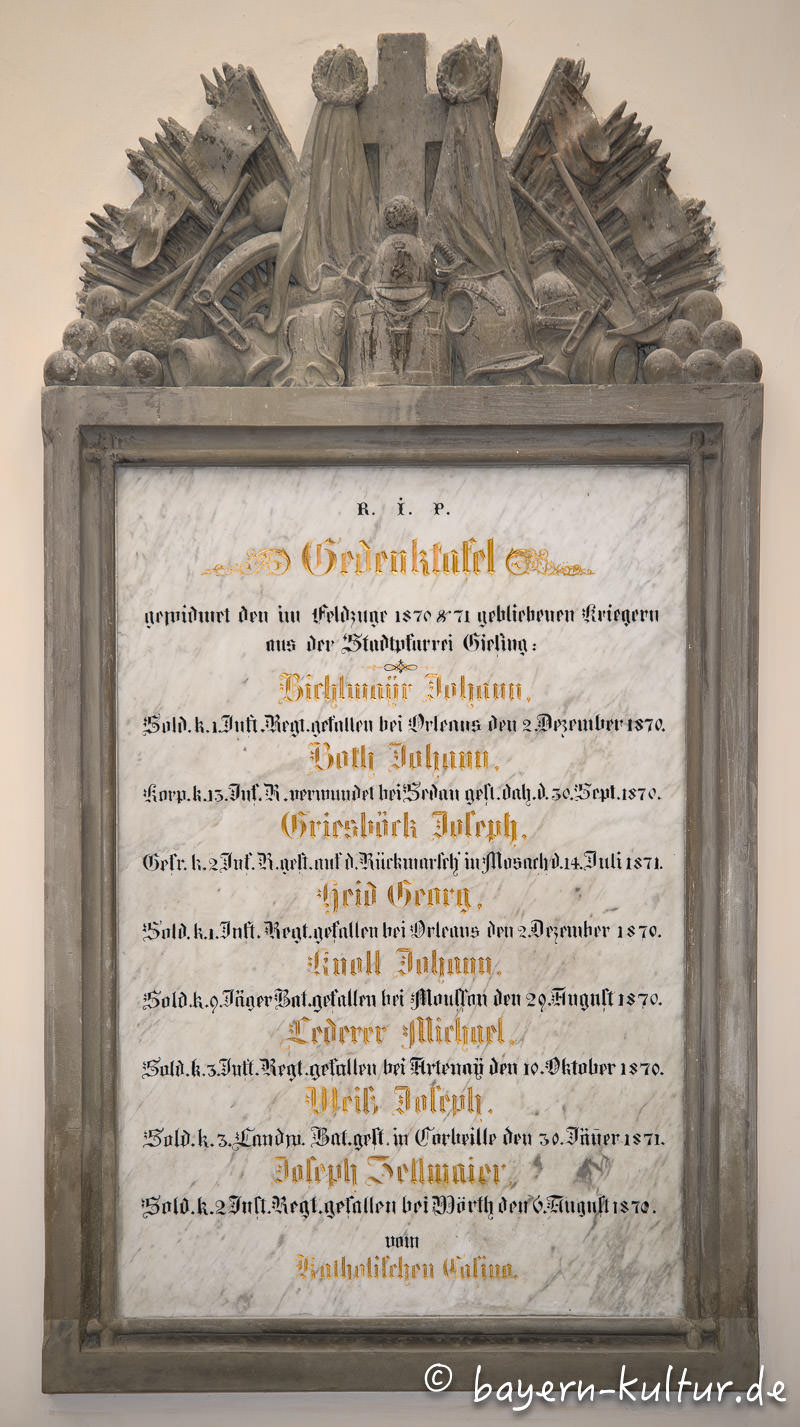 R. I. P.
Gedenktafel
gewidmet den im Feldzuge 1870 & 71 gebliebenen Kriegern
aus der Stadtpfarrei Giesing:
Bichlmaÿr Johann,
Sold. k. 1. Inft. Regt. gefallen bei Orleans den 2. Dezember 1870.
Both Johann,
Korp. k. 13. Inf. R. verwundet bei Sedan gest. dah. d. 30. Sept. 1870.
Griesböck Joseph,
Gefr. k. 2 Inf. R. gest. auf d. Rückmarsch in Mosach d. 14. Juli 1871.
Heid Georg,
Sold. k. 1. Inft. Regt. gefallen bei Orleans den 2. Dezember 1870.
Knoll Johann,
Sold. k. 9. Jäger Bat. gefallen bei Mousson den 29. August 1870.
Lederer Michael,
Sold. k. 3. Inft. Regt. gefallen bei Artenaÿ den 10. Oktober 1870.
Weiß Joseph,
Sold. k. 3. Landw. Bat. gest. in Corbeille den 30. Jäner 1871.
Joseph Zellmaier,
Sold. k. 2 Inft. Regt. gefallen bei Wörth den 6. August 1870.
vom
Katholischen Casino.
© bayern-kultur.de